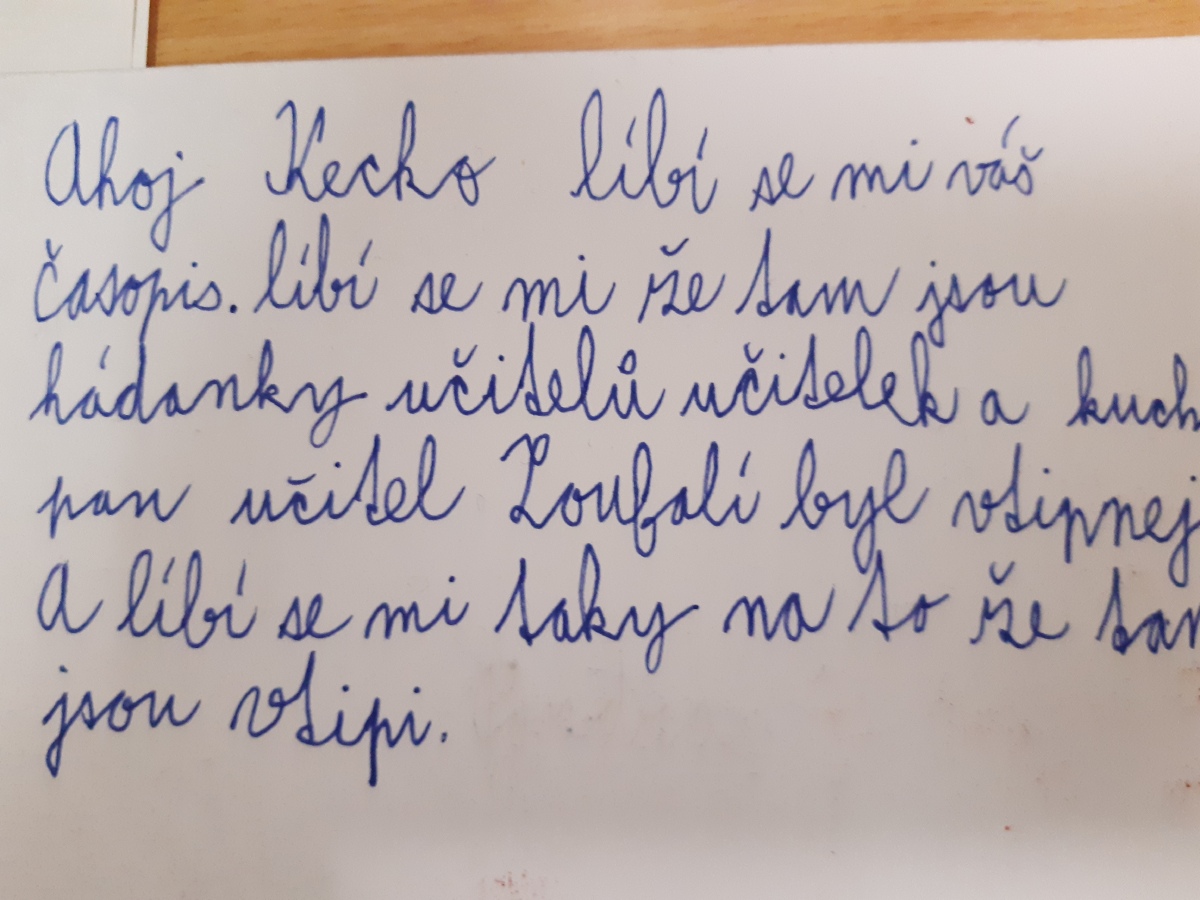 Ahoj Kecko líbí se mi váš
časopis. líbí se mi že tam jsou
hádanky učitelů učitelek a kuch
pan učitel Loufalí byl vtipnej
A líbí se mi taky na to že tam
jsou vtipi.